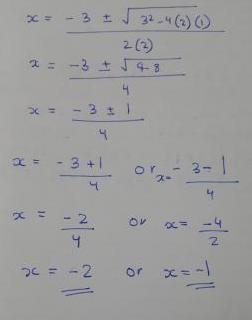 x = (-3 ± √(3²-4(2)(1))) / 2(2)
x = (-3 ± √(9-8)) / 4
x = (-3 ± 1) / 4
x = (-3+1) / 4 or x = (-3-1) / 4
x = -2/4 or x = -4/2
x = -2 or x = -1